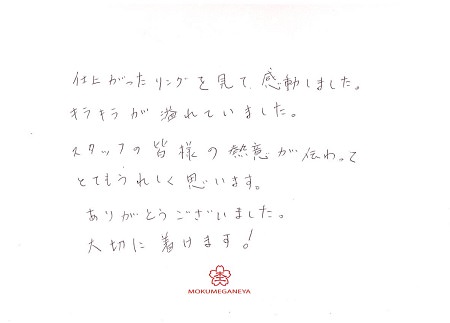 仕上がったリングを見て、感動しました。
キラキラが溢れていました。
スタッフの皆様の熱意が伝わって
とてもうれしく思います。
ありがとうございました。
大切に着けます!
MOKUMEGANEYA